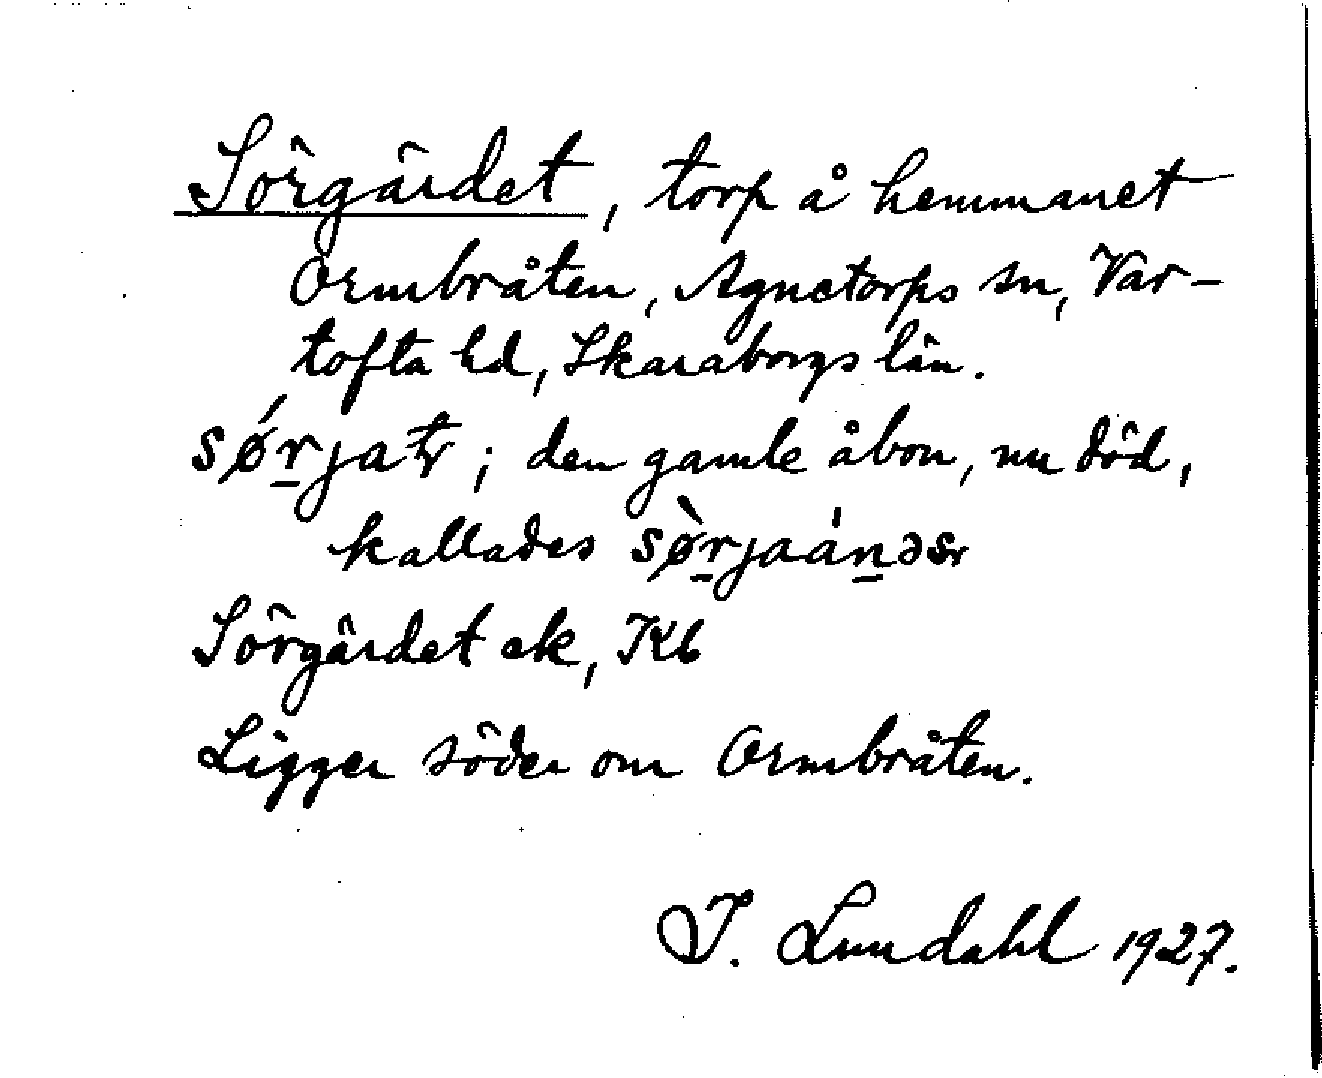 Sörgärdet, torp å hemmanet
Ormbråten, Agnetorps sn, Var-
tofta hd, Skaraborgs län.
sǿr̲jat; den gamle åbon, nu död,
kallades sø̀r̲jaán̲əsr
Sörgärdet ek, Kb
Ligger söder om Ormbråten.
I. Lundahl 1927.